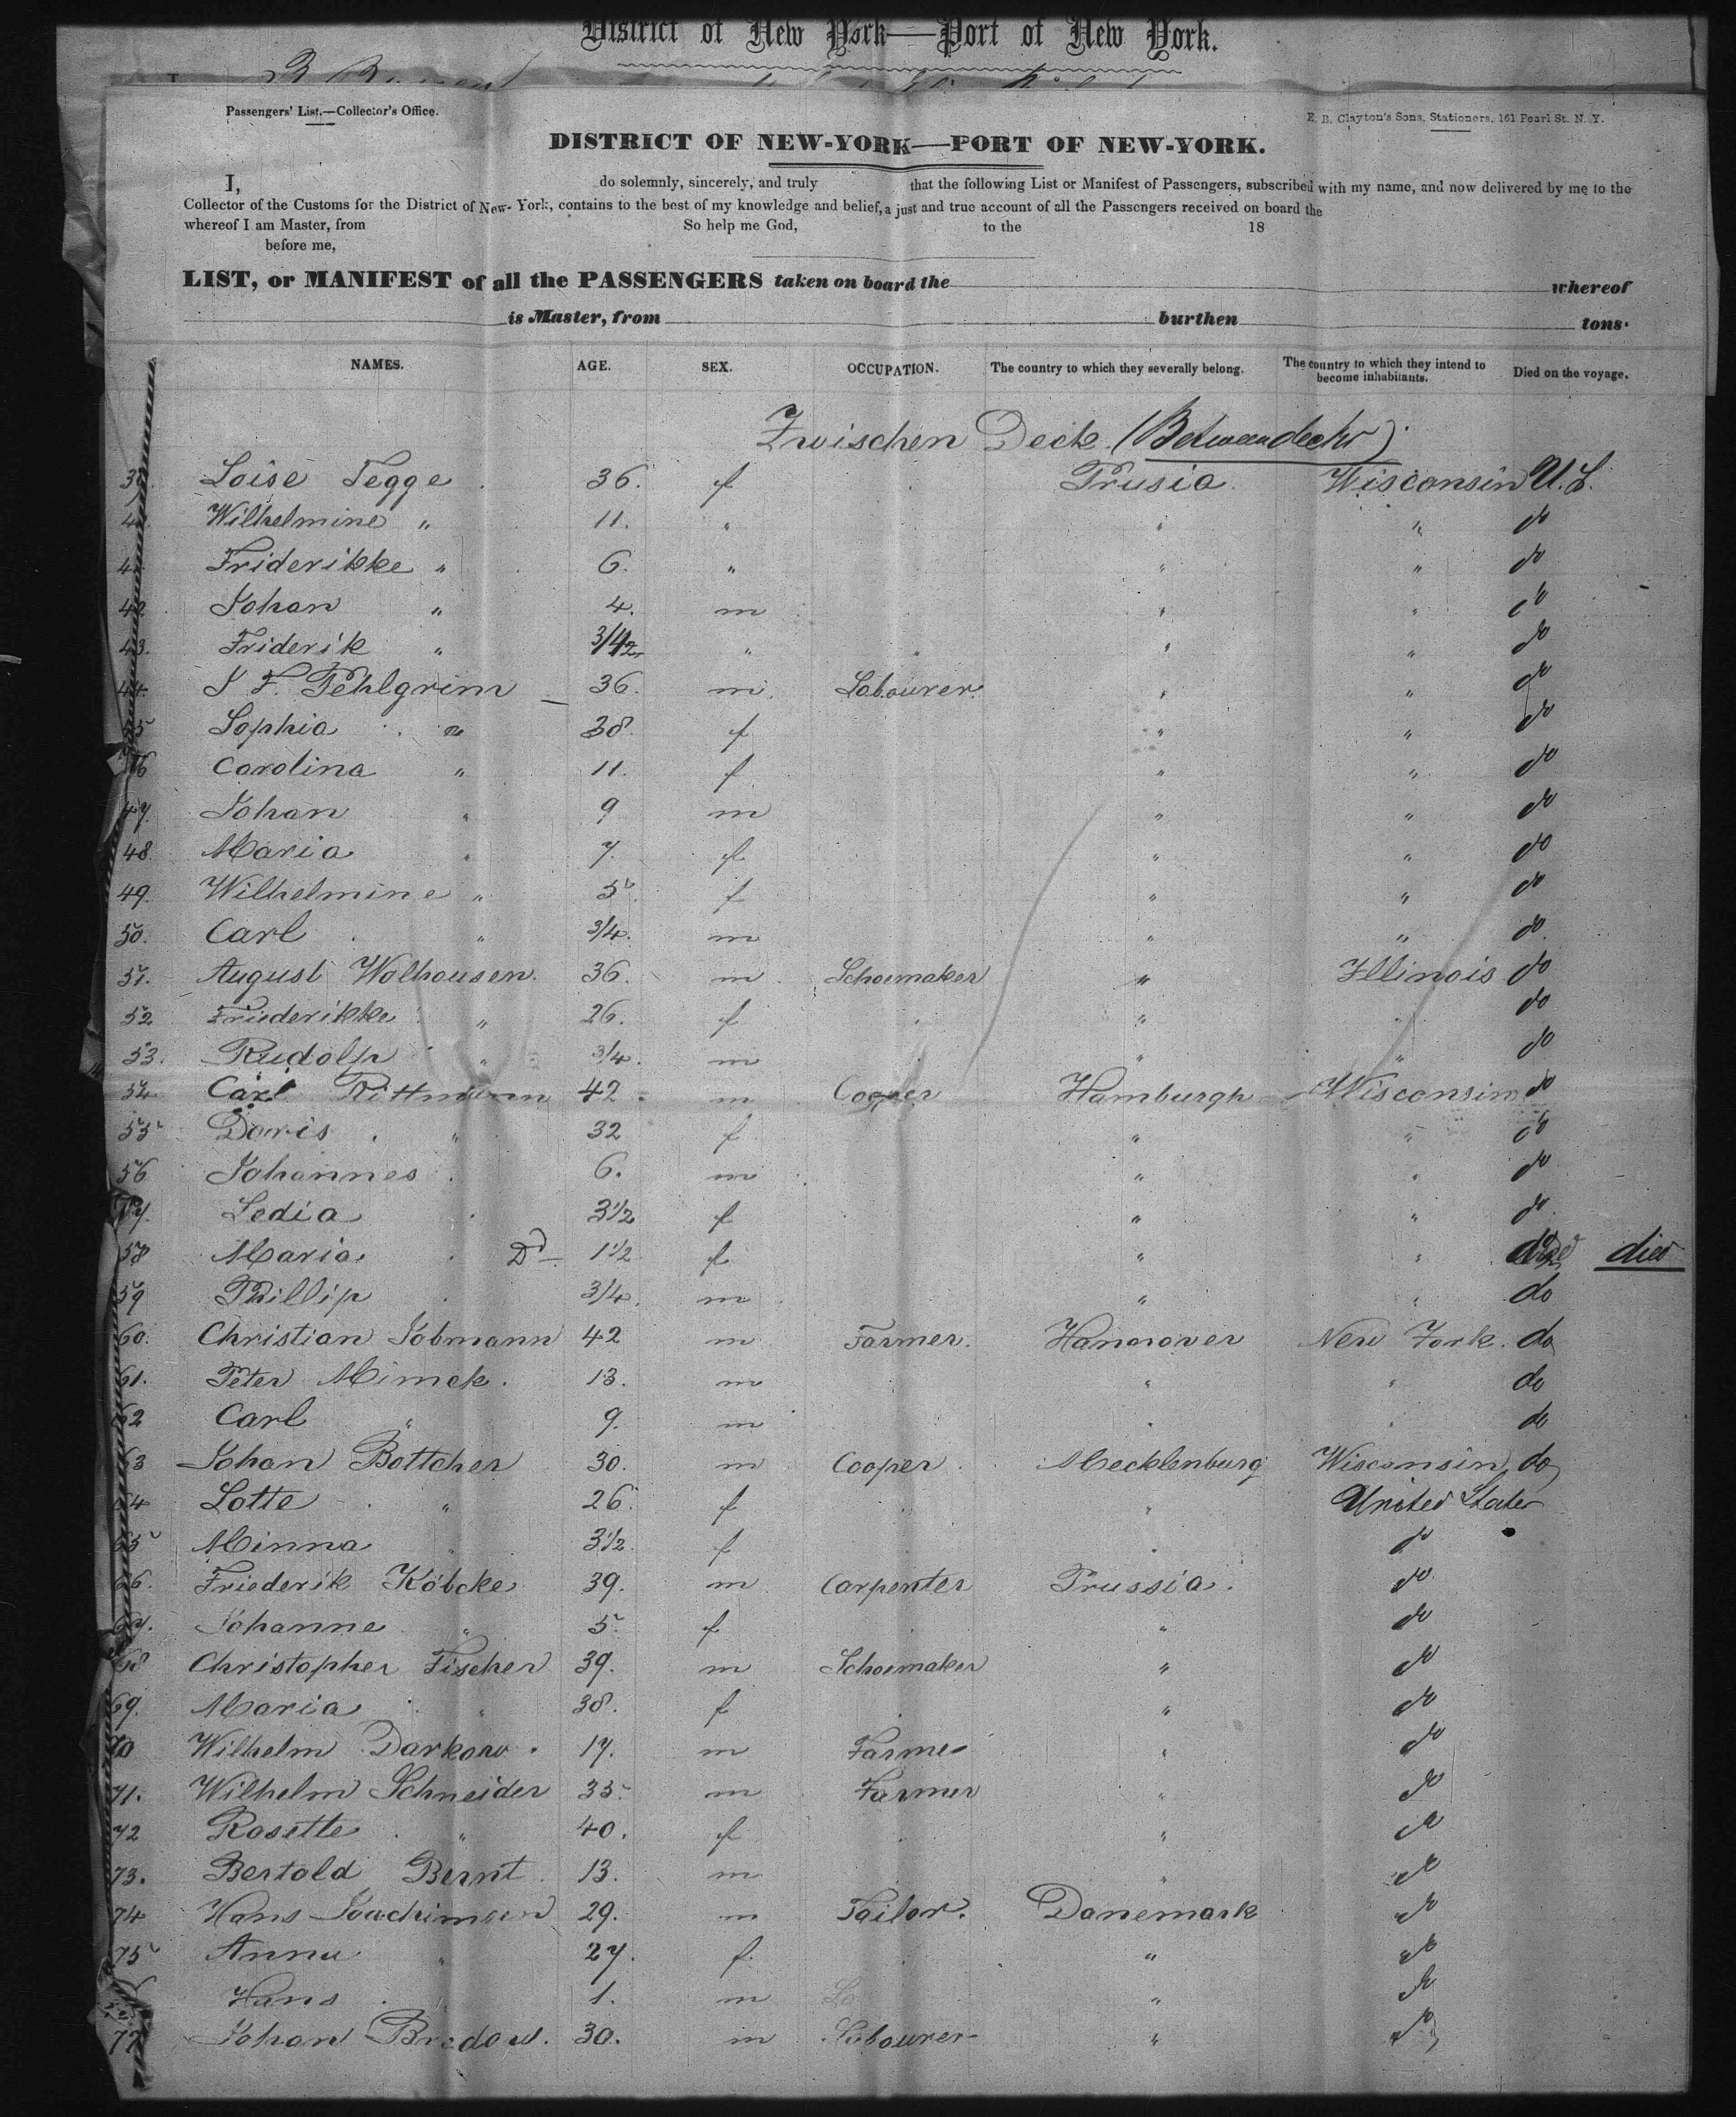 District of New York—Port of New York.
Passengers' List.—Collector's Office.
E. B. Clayton's Sons, Stationers, 161 Pearl St. N. Y.
DISTRICT OF NEW-YORK—PORT OF NEW-YORK.
I, do solemnly, sincerely, and truly that the following List or Manifest of Passengers, subscribed with my name, and now delivered by me to the
Collector of the Customs for the District of New-York, contains to the best of my knowledge and belief, a just and true account of all the Passengers received on board the
whereof I am Master, from So help me God, to the 18
before me,
LIST, or MANIFEST of all the PASSENGERS taken on board the whereof
is Master, from burthen tons.
NAMES. AGE. SEX. OCCUPATION. The country to which they severally belong. The country to which they intend to become inhabitants. Died on the voyage.
Zwischen Deck (Betweendecks).
Loise Tegge 36. f Prusia Wisconsin U.S.
Wilhelmine " 11. " " " do
Friderikke " 6. " " " do
42. Johan " 4. m " " do
43. Friderik " 3/4 " " " do
44. J F. Fehlgrim 36. m. Labourer. " " do
Sophia " 38. f " " do
46 Carolina " 11. f " " do
47. Johan " 9 m " " do
48 Maria " 7. f " " do
49. Wilhelmine " 5. f " " do
50. Carl " 3/4. m " " do
51. August Wolhousen. 36. m Schoemaker " Illinois do
52 Friederikke " 26. f " " do
53. Rudolph " 3/4. m " " do
54 Carl Rittmann 42 m Cooper Hamburgh Wisconsin do
55 Doris " 32 f " " do
56 Johannes 6. m " " do
57. Ledia 3 1/2 f " " do
58 Maria Dd 1 1/2 f " " died
59 Phillip 3/4. m " " do
60. Christian Jobmann 42 m Farmer. Hannover New York. do
61. Peter Mimck. 13. m " " do
62 Carl " 9. m " " do
63 Johan Bottcher 30. m Cooper Mecklenburg Wisconsin do
64 Lotte " 26 f " United States
65 Minna " 3 1/2 f " do
66. Friederik Köbcke 39. m Carpenter Prussia. do
67. Johanne " 5. f " do
68 Christopher Fischer 39. m Schoemaker " do
69. Maria " 38. f " do
70 Wilhelm Darkow. 17. m Farmer " do
71. Wilhelm Schneider 35. m Farmer " do
72 Rosette " 40. f " do
73. Bertold Bernt 13. m " do
74 Hans Joachimsen 29. m Tailor. Danemark do
75 Anna " 27. f. " do
Hans 1. m " do
77 Johan Bredow. 30. m Labourer " do